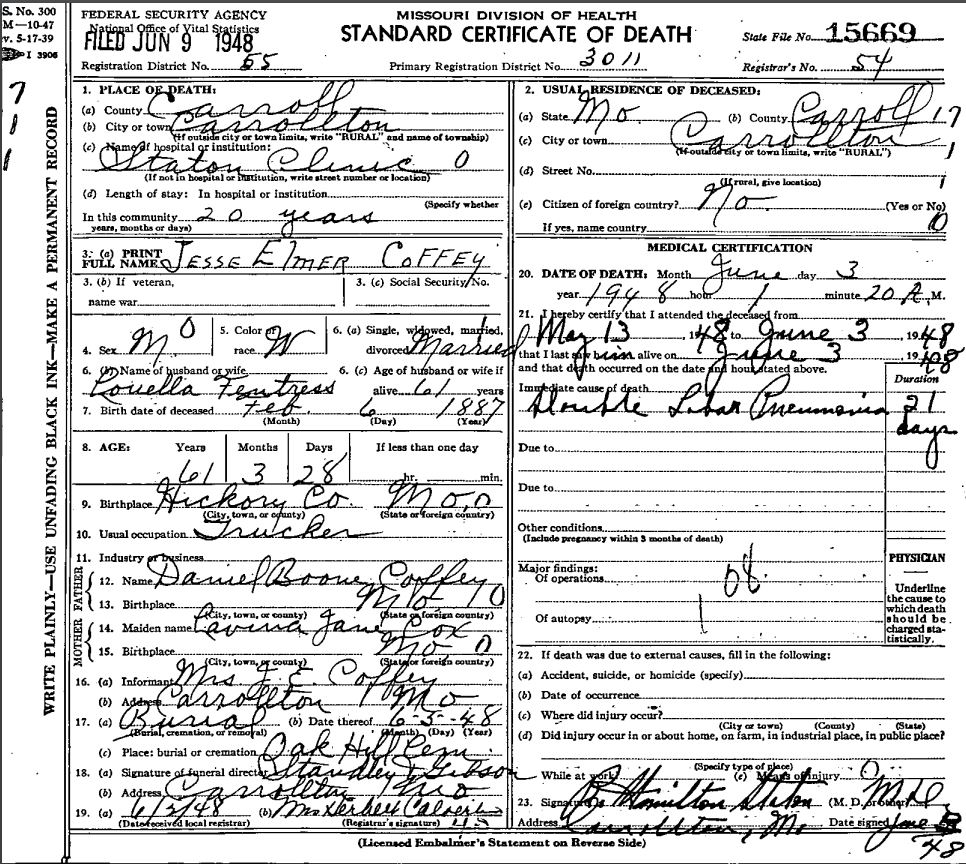 S. No. 300
M—10-47
v. 5-17-39
I 3906
FEDERAL SECURITY AGENCY
National Office of Vital Statistics
FILED JUN 9 1948
Registration District No. 55
MISSOURI DIVISION OF HEALTH
STANDARD CERTIFICATE OF DEATH
Primary Registration District No. 3011
State File No. 15669
Registrar's No. 54
7
1
1
WRITE PLAINLY—USE UNFADING BLACK INK—MAKE A PERMANENT RECORD
1. PLACE OF DEATH:
(a) County Carroll
(b) City or town Carrollton
(If outside city or town limits, write "RURAL" and name of township)
(c) Name of hospital or institution:
Staton Clinic 0
(If not in hospital or institution, write street number or location)
(d) Length of stay: In hospital or institution
(Specify whether
In this community 20 years
years, months or days)
3. (a) PRINT FULL NAME JESSE ELMER COFFEY
3. (b) If veteran,
name war
3. (c) Social Security No.
4. Sex M 0
5. Color or race W
6. (a) Single, widowed, married, divorced Married
6. (b) Name of husband or wife
Louella Fentress
6. (c) Age of husband or wife if
alive 61 years
7. Birth date of deceased Feb. 6 1887
(Month) (Day) (Year)
8. AGE: Years Months Days If less than one day
61 3 28 hr. min.
9. Birthplace Hickory Co. Mo. 0
(City, town, or county) (State or foreign country)
10. Usual occupation Trucker
11. Industry or business
FATHER
12. Name Daniel Boone Coffey
13. Birthplace Mo 0
(City, town, or county) (State or foreign country)
MOTHER
14. Maiden name Lavina Jane Cox
15. Birthplace Mo. 0
(City, town, or county) (State or foreign country)
16. (a) Informant Mrs J. E. Coffey
(b) Address Carrollton Mo
17. (a) Burial (b) Date thereof 6-5-48
(Burial, cremation, or removal) (Month) (Day) (Year)
(c) Place: burial or cremation Oak Hill Cem.
18. (a) Signature of funeral director Standley & Gibson
(b) Address Carrollton Mo
19. (a) 6/5/48 (b) Mrs Herbert Calvert
(Date received local registrar) (Registrar's signature)
2. USUAL RESIDENCE OF DECEASED:
(a) State Mo. (b) County Carroll 17
(c) City or town Carrollton 1
(If outside city or town limits, write "RURAL")
(d) Street No. 1
(If rural, give location)
(e) Citizen of foreign country? No. (Yes or No)
If yes, name country 0
MEDICAL CERTIFICATION
20. DATE OF DEATH: Month June day 3
year 1948 hour 1 minute 20 A. M.
21. I hereby certify that I attended the deceased from
May 13, 1948 to June 3 1948
that I last saw him alive on June 3 1948
and that death occurred on the date and hour stated above.
Duration
Immediate cause of death
Double Lobar Pneumonia 21 days
Due to
Due to
Other conditions
(Include pregnancy within 3 months of death)
Major findings:
Of operations
108
Of autopsy
PHYSICIAN
Underline
the cause to
which death
should be
charged sta-
tistically.
22. If death was due to external causes, fill in the following:
(a) Accident, suicide, or homicide (specify)
(b) Date of occurrence
(c) Where did injury occur?
(City or town) (County) (State)
(d) Did injury occur in or about home, on farm, in industrial place, in public place?
(Specify type of place)
While at work? (e) Means of injury 0
23. Signature R. Hamilton Staton (M. D. or other) M.D.
Address Carrollton, Mo. Date signed June 48
(Licensed Embalmer's Statement on Reverse Side)